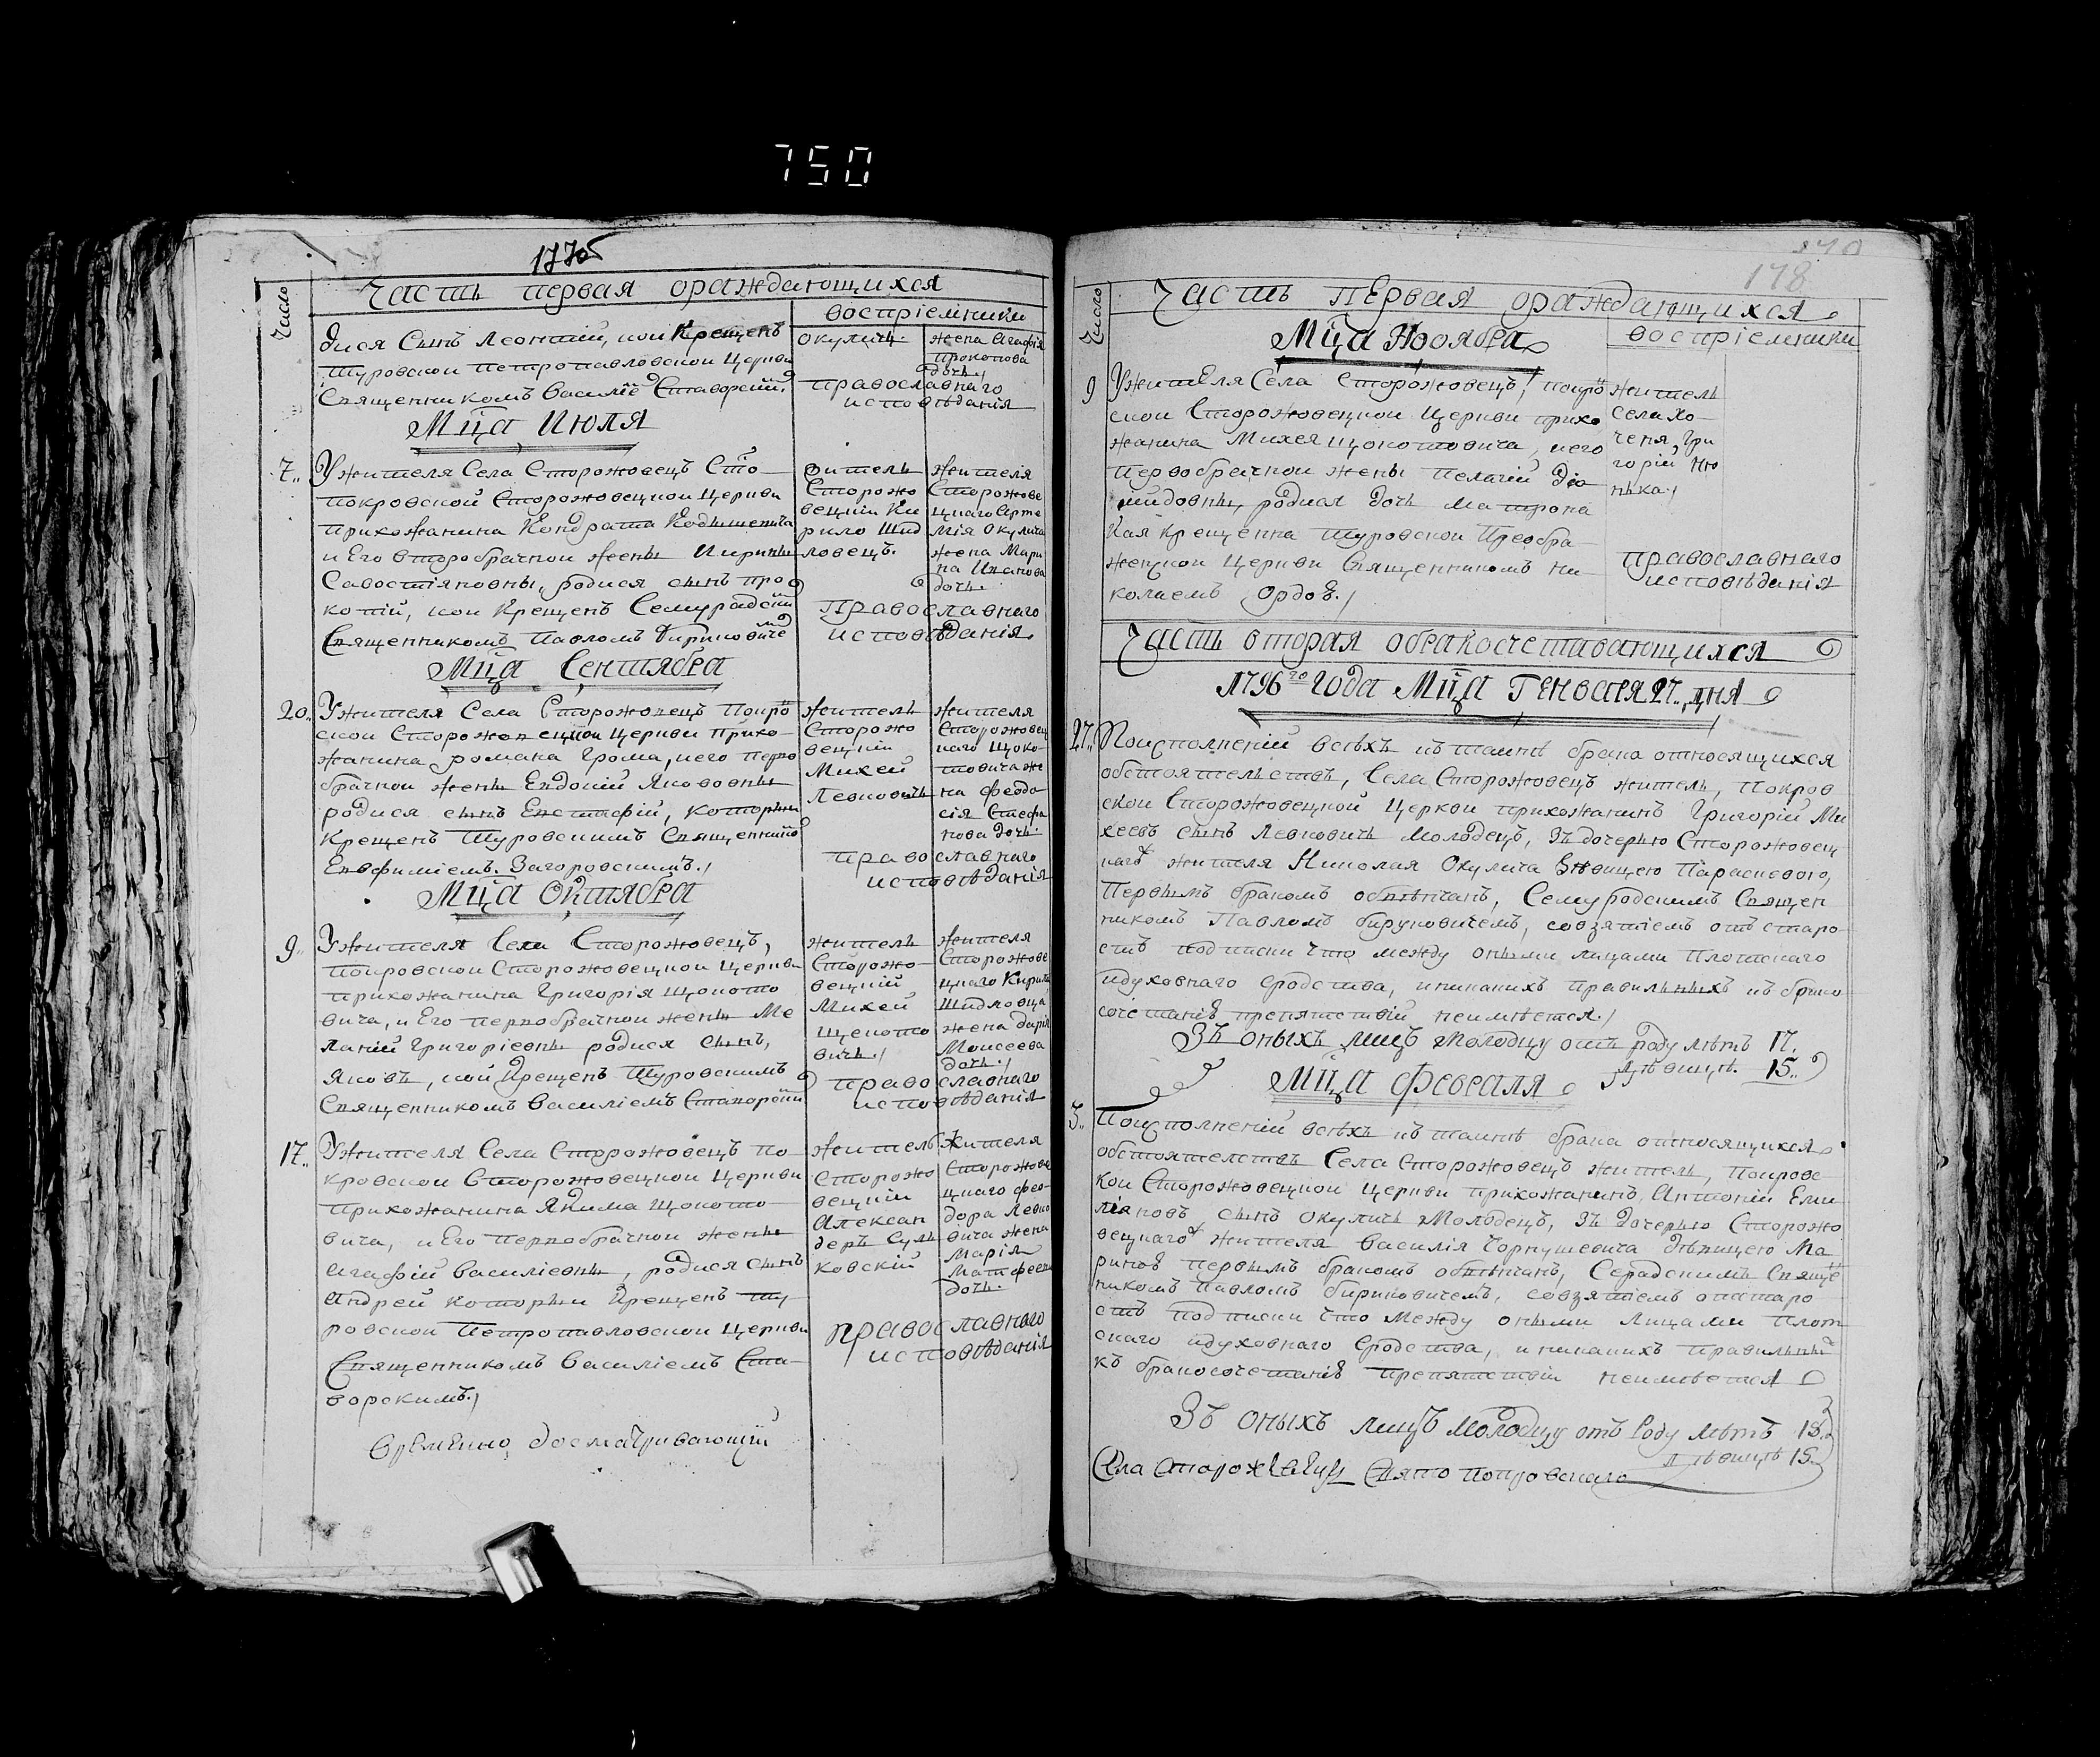 750
1796
Число
Часть первая ораждающихся
воспріемники
дися Сынъ Леонтій, кой Крещенъ
Туровской петропавловской Церкви
Священникомъ Василіе Ставорскій
окуличъ
жена Агафія
прокопова
дочь
православнаго
исповѣданія
Мца Июля
7.. У жителя Села Сторожовецъ Сто
покровской Сторожовецкой Церкви
прихожанина Кондрата
и Его второбрачной жены Ирины
Савостіяновны, родися сынъ про
копій, кой Крещенъ
Священникомъ Павломъ
житель
Сторожо
вецкій Ки
рило Шид
ловецъ.
жителя
Сторожове
цкаго Арте
мія Окулича
жена Мари
на Иванова
дочь.
православнаго
исповѣданія
Мца Сентября
20.. У жителя Села Сторожовецъ Покро
ской Сторожовецкой Церкви Прихо
жанина романа Грома, иего перво
брачной жены Евдокій Якововны
родися сынъ Евстафій, которы
крещенъ Туровскимъ Священнико
Евфиміемъ Загоровскимъ.
житель
Сторожо
вецкій
Михей
Левковичь
жителя
Сторожовец
каго Щоко
товича же
на феодо
сія Стефа
нова дочь.
православнаго
исповѣданія
Мца Октября
9.. У жителя Села Сторожовецъ,
покровской Сторожовецкой Церкви
прихожанина Григорія Щокото
вича, и Его первобрачной жены Ме
ланіи Григоріевны родися сынъ,
Яковъ, кой Крещенъ Туровскимъ
Священникомъ Василіемъ
житель
Сторожо
вецкій
Михей
Щекото
вичь
жителя
Сторожове
цкаго Кирила
Шидловца
жена дарія
Моисеева
дочь
православнаго
исповѣданія
17.. У жителя Села Сторожовецъ по
кровской Сторожовецкой Церкви
Прихожанина Якима Щокото
вича, и Его первобрачной жены
Агафій Василіевны, родися сынъ
Андрей которы Крещенъ ту
ровской Петропавловской Церкви
Священникомъ Василіемъ Ста
ворскимъ.
житель
Сторожо
вецкій
Алексан
деръ Суль
ковскій
жителя
Сторожове
цкаго фео
дора Левко
вича жена
Марія
Матфеева
дочь.
православнаго
исповѣданія
временно досматривающій
178
Число
Часть первая ораждающихся
Мца Ноября
воспріемники
9 У жителя Села Сторожовецъ, покро
ской Сторожовецкой Церкви прихо
жанина Михея Щокотовича, иего
первобрачной жены Пелагій Діо
мидовны, родися дочь Матрона
кая крещенна Туровской Преобра
женской Церкви Священникомъ Ни
колаемъ
житель
села Хо
ченя, Гри
горій
православнаго
исповѣданія
Часть вторая обракосчетавающихся
1796го года Мца Генваря 27.. дня
27.. Поисполненій всѣхъ къ таинѣ брака относящихся
обстоятельствъ, Села Сторожовецъ житель, Покров
ской Сторожовецкой Церкви прихожанинъ Григорій Ми
хеевъ сынъ Левковичь молодецъ, зъ дочерью Сторожовец
каго жителя Николая Окулича дѣвицею Параскевою,
Первымъ бракомъ обвѣнчанъ, Семурадскимъ Священ
никомъ Павломъ бируковичемъ, совзятіемъ отъ старо
сть подписки что между оными лицами Плотскаго
идуховнаго сродства, иникакихъ правильныхъ къ брако
сочетанію препятствій неимѣется.
Зъ оныхъ лицъ молодцу отъ роду лѣтъ 17.
дѣвицѣ. 15..
Мца Февраля
3.. Поисполненій всѣхъ къ таинѣ брака относящихся
обстоятелствъ Села Сторожовецъ житель, Покровс
кой Сторожовецкой Церкви прихожанинъ, Антоній Еми
ліяновъ сынъ Окуличь Молодецъ, Зъ дочерью Сторожо
вецкаго жителя Василія Чорнушевича дѣвицею Ма
риною первымъ бракомъ обвѣнчанъ, Священ
никомъ Павломъ бириковичемъ, совзятіемъ отстаро
сть подписки что между оными Лицами плот
скаго идуховнаго Сродства, иникакихъ правильны
къ бракосочетанію препятствіи неимѣется
Зъ оныхъ лицъ молодцу отъ Роду лѣтъ 18..
дѣвицѣ 15..
Села Сторожовецъ Свято Покровскаго